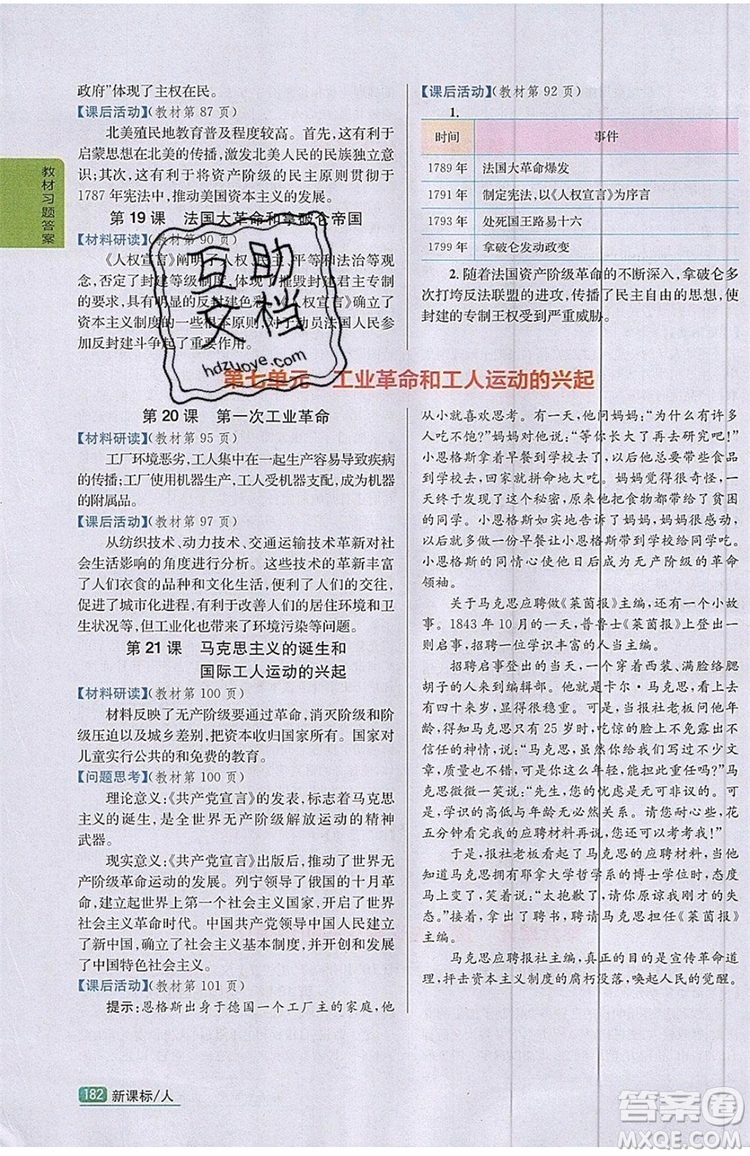 教材习题答案
政府"体现了主权在民。
【课后活动】(教材第 87 页)
北美殖民地教育普及程度较高。首先,这有利于
启蒙思想在北美的传播,激发北美人民的民族独立意
识;其次,这有利于将资产阶级的民主原则贯彻到
1787 年宪法中,推动美国资本主义的发展。
第 19 课 法国大革命和拿破仑帝国
【材料研读】(教材第 90 页)
《人权宣言》阐明了人权、平等和法治等观
念,否定了封建等级
制的革命成果,具有
资本主义制度的一些根本原则,对于动员法国人民参
加反封建斗争起了重要作用。
【课后活动】(教材第 92 页)
1.
时间 事件
1789 年 法国大革命爆发
1791 年 制定宪法,以《人权宣言》为序言
1793 年 处死国王路易十六
1799 年 拿破仑发动政变
2. 随着法国资产阶级革命的不断深入,拿破仑多
次打垮反法联盟的进攻,传播了民主自由的思想,使
封建的专制王权受到严重威胁。
第七单元 工业革命和工人运动的兴起
第 20 课 第一次工业革命
【材料研读】(教材第 95 页)
工厂环境恶劣,工人集中在一起生产容易导致疾病
的传播;工厂使用机器生产,工人受机器支配,成为机器
的附属品。
【课后活动】(教材第 97 页)
从纺织技术、动力技术、交通运输技术革新对社
会生活影响的角度进行分析。这些技术的革新丰富
了人们衣食的品种和文化生活,便利了人们的交往,
促进了城市化进程,有利于改善人们的居住环境和卫
生状况等,但工业化也带来环境污染等问题。
第 21 课 马克思主义的诞生和
国际工人运动的兴起
【材料研读】(教材第 100 页)
材料反映了无产阶级要通过革命,消灭阶级和阶
级压迫以及城乡差别,把资本收归国家所有。国家对
儿童实行公共的和免费的教育。
【问题思考】(教材第 100 页)
理论意义:《共产党宣言》的发表,标志着马克思
主义的诞生,是全世界无产阶级解放运动的精神
武器。
现实意义:《共产党宣言》出版后,推动了世界无
产阶级革命运动的发展。列宁领导了俄国的十月革
命,建立起世界上第一个社会主义国家,开创了世界
社会主义革命时代。中国共产党领导了中国革命的
胜利,在中国确立了社会主义基本制度,并成功开辟
了中国特色社会主义。
【课后活动】(教材第 101 页)
提示:恩格斯出身于德国一个工厂主的家庭,他
从小就喜欢思考。有一天,他问妈妈:"为什么有许多
人吃不饱?"妈妈对他说:"等你长大了就知道了。"
小恩格斯拿着早餐到学校去,妈妈给他准备的食品会
全吃完,回到家就拼命地大吃。妈妈觉得很奇怪,一
天终于发现了这个秘密,原来他把早餐送给了贫困的
同学。小恩格斯如实地告诉了妈妈,妈妈很感动,以
后每次都做一份早餐让小恩格斯带到学校给同学吃。
小恩格斯的同情心使他日后成为无产阶级的革命
领袖。
关于马克思应聘做《莱茵报》主编,还有一个小故
事。1843 年 10 月的一天,普鲁士《莱茵报》登出一则
启事:招聘一位学识丰富的人为主编。
招聘启事登出的当天,一位穿着西装、满脸留着络腮
胡子的人来到编辑部。他就是卡尔·马克思,看上去
有四十来岁,显得很稳重。当报社老板打开他的登记
材料,发现马克思只有 25 岁时,吃惊的脸上表现出无
可信任的神情,说:"马克思先生,您可是没写过不少文
章,我们需要一个阅历很深、威望很高的主编。"马克
思微微一笑说:"先生,您的忧虑我也曾想过。可是,
学识的高低与年龄无必然关系。如果可以的话,花
五分钟看完我的应聘材料再说吧!"
于是,报社老板看了马克思的应聘材料。当他看
到马克思有耶拿大学哲学系的博士学位时,态度
马上变了,笑着说:"太抱歉了,请马克思先生原
谅。"接着,拿出了聘书,聘请马克思为《莱茵报》
主编。
马克思应聘报社主编,真正的目的是宣传革命道
理,抨击资本主义制度的腐朽没落,唤起人民的觉醒。
182 新课标/人
互助
文档
hdzuoye.com
答案圈
MXQE.COM